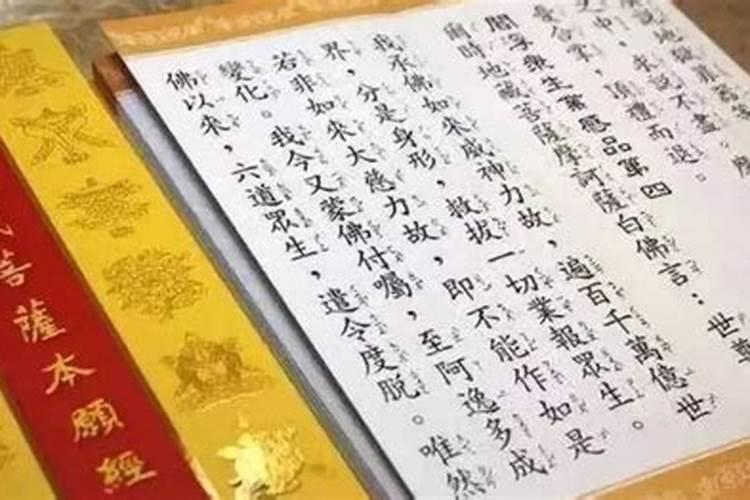 說地獄罪
中，求說不盡。
合掌，頂禮而退。
閻浮眾生業感品第四
爾時地藏菩薩摩訶薩白佛言：世尊
我承佛如來威神力故，遍百千萬億世
界，分是身形，救拔一切業報眾生。
若非如來大慈力故，即不能作如是
變化。我今又蒙佛付囑，至阿逸多成
佛以來，六道眾生，遣令度脫。唯然
菩薩本願經